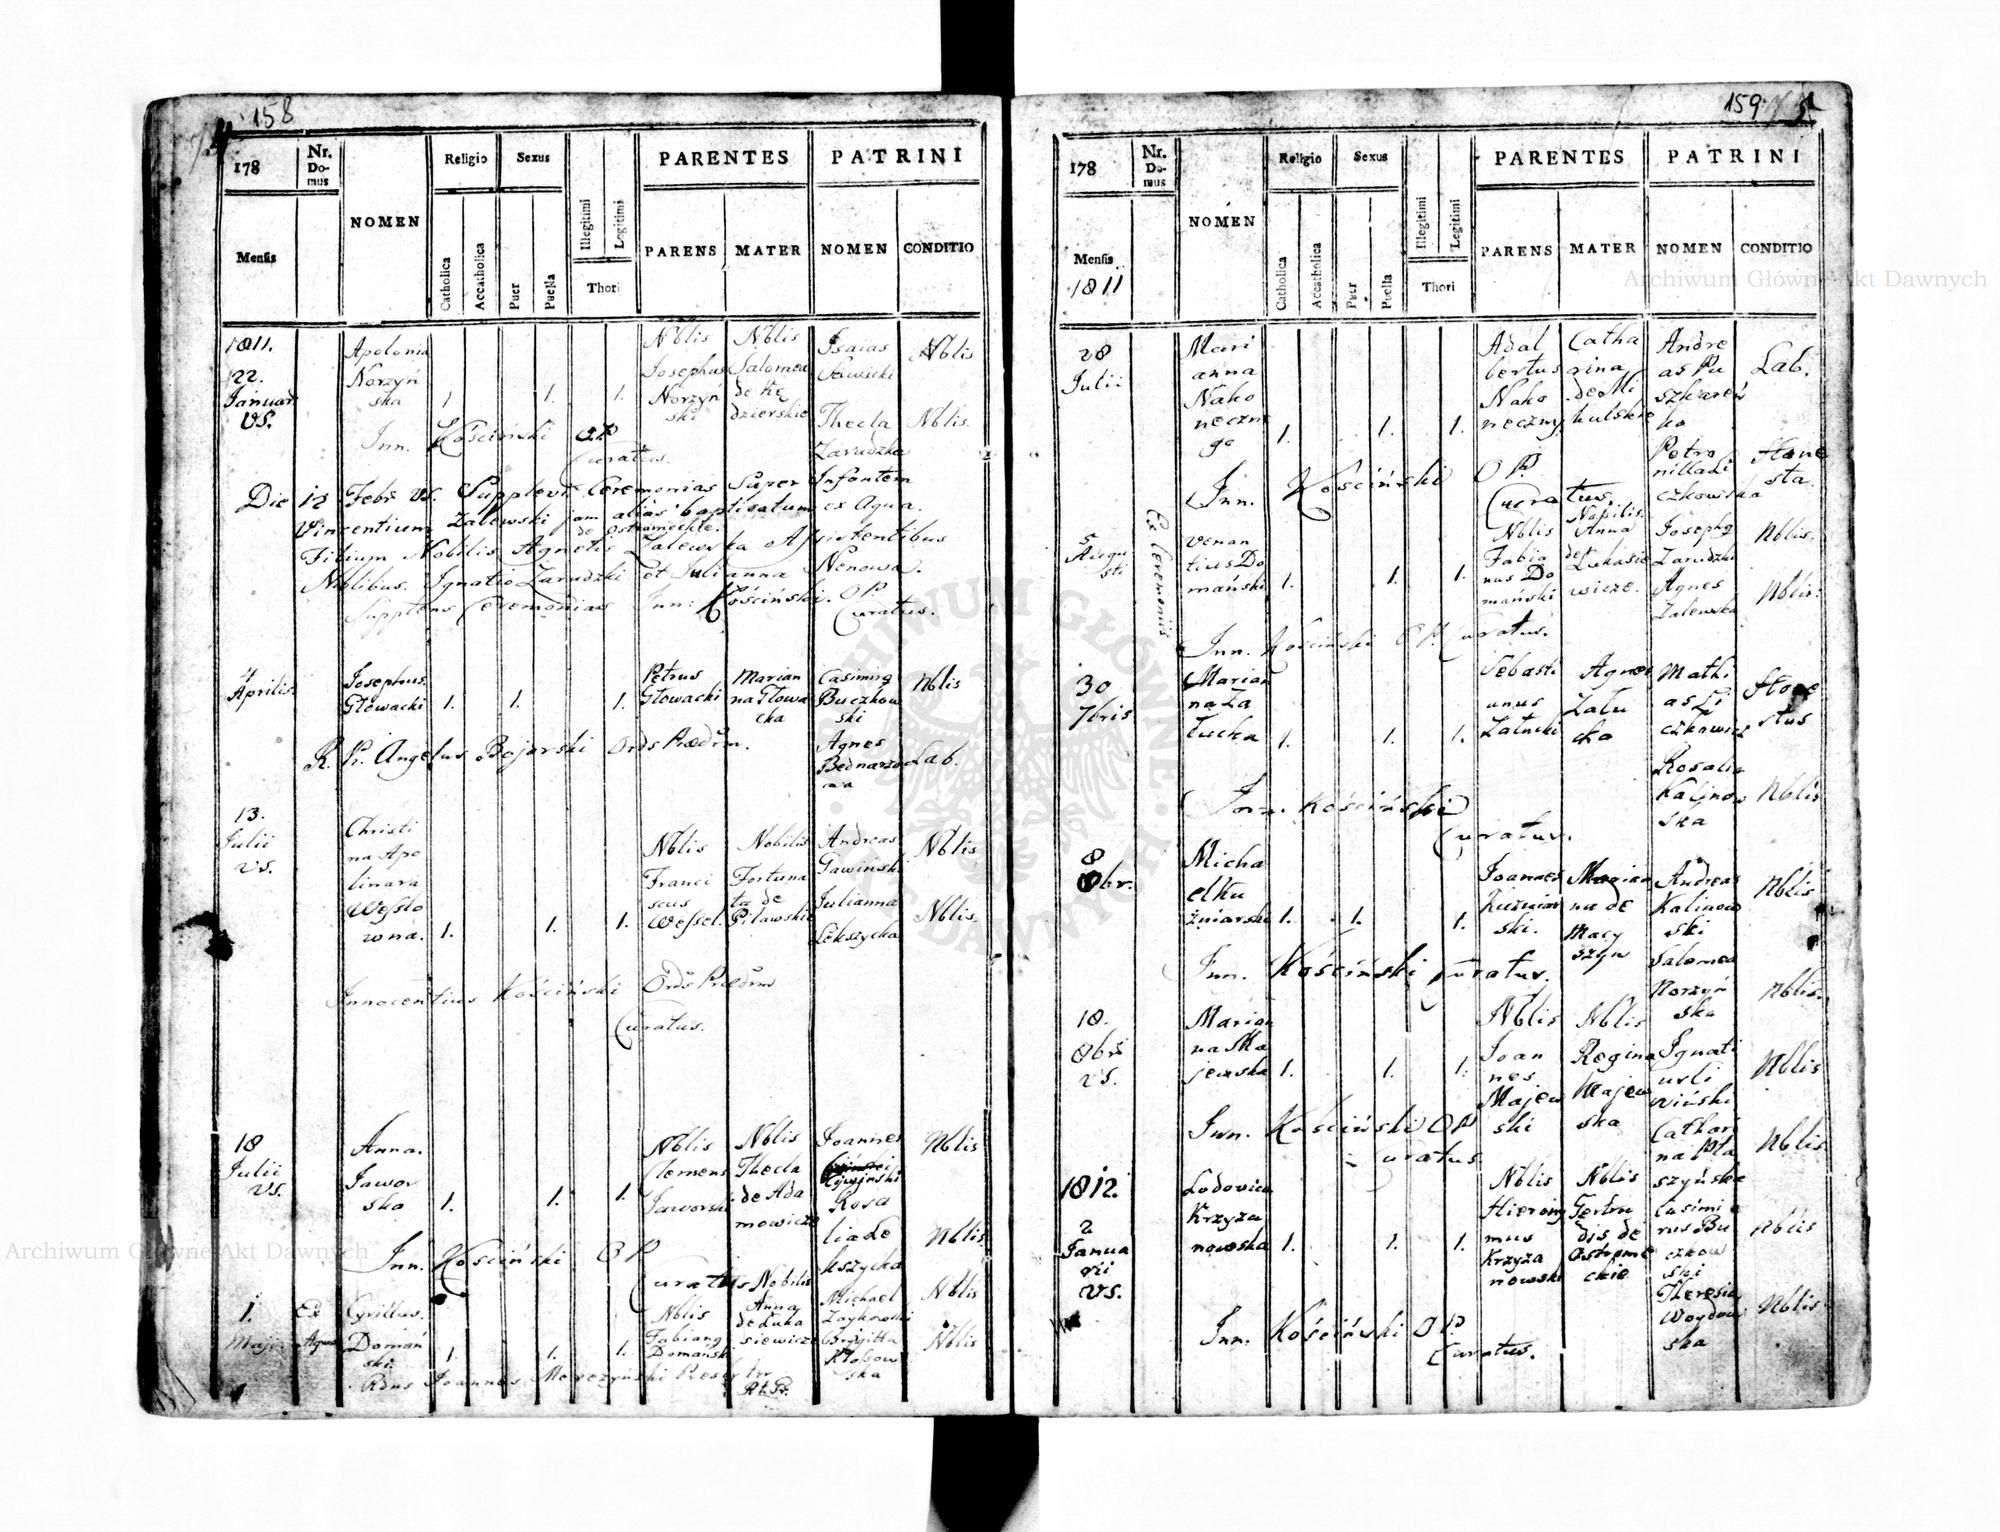 158
178
Nr. Domus
NOMEN
Religio
Sexus
Illegitimi
Legitimi
PARENTES
PATRINI
Mensis
Catholica
Accatholica
Puer
Puella
Thori
PARENS
MATER
NOMEN
CONDITIO
1811.
22. Januar VS.
Apolonia Norzyńska
1 1. 1.
Nblis Josephus Norzyński
Nblis Salomea de Kędzierskie
Isaias Sawicki
Nblis
Thecla Zarudzka
Nblis.
Inn. Kościński OP
Curatus.
Die 12 Febr VS. Supplevi Ceremonias Super Infantem
Vincentium Zalewski jam alias baptisatum ex Aqua.
de Ostromęckie.
Filium Nobilis Agnetis Zalewska Assistentibus
Nblibus. Ignatio Zarudzki et Julianna Nenowa.
Supplens Ceremonias Inn: Kościński. OP
Curatus.
7 Aprilis
Josephus Głowacki
1. 1. 1.
Petrus Głowacki
Marianna Głowacka
Casimirg Buczkowski
Nblis
Agnes Bednarzowa
Lab.
R. Pr. Angelus Bojarski Ords Prædm.
13. Julii VS.
Christina Apolinara Wesslowna.
1. 1. 1.
Nblis Franciscus Wessel.
Nobilis Fortunata de Pilawskie
Andreas Gawiński
Nblis
Julianna Lekszycka
Nblis.
Innocentius Kościński Ords Prædm
Curatus.
18 Julii VS.
Anna. Jaworska
1. 1. 1.
Nblis Clemens Jaworski
Nblis Thecla de Adamowicze
Joannes
Nblis
Rosalia Lekszycka
Nblis
Inn. Kościński OP
Curatus
1. Maji
Ex Aqua
Cyrillus. Domański.
1. 1. 1.
Nblis Fabiang Domański
Nobilis Anna de Lukasiewicze
Michael Zaykowski
Nblis
Brigitta Kłossowska
Nblis
Rdus Joannes Marczyński Presbiter
159
178
Nr. Domus
NOMEN
Religio
Sexus
Illegitimi
Legitimi
PARENTES
PATRINI
Mensis
1811
Catholica
Accatholica
Puer
Puella
Thori
PARENS
MATER
NOMEN
CONDITIO
28 Julii
Marianna Nakonecznego
1. 1. 1.
Adalbertus Nakoneczny
Catharina de Mikulskie
Andreas Puszkarenko
Lab.
Honesta
Inn. Kościński OP
Curatus.
5 Augusti
Ex Ceremoniis
Venantius Domański
1. 1. 1.
Nblis Fabianus Domański
Nobilis. Anna de Lukasiewicze.
Josephg Zarudzki
Nblis.
Agnes Zalewska
Nblis.
Inn. Kościński OP. Curatus.
30 7bris
Marianna Załucka
1. 1. 1.
Sebastianus Załucki
Agnes Załucka
Mathias Liczkowicz
Honestus
Rosalia Kalinowska
Nblis
Inn. Kościński
Curatus.
8 8br.
1. 1. 1.
Joannes Kuźniarski.
Marianna de Macyszyn
Andreas Kalinowski
Nblis
Salomea Norzyńska
Nblis.
Inn. Kościński Curatus.
18. 8bris VS.
Marianna Majewska
1. 1. 1.
Nblis Joannes Majewski
Nblis Regina Majewska
Ignatius Liwiński
Nblis
Catharina Płaszyńska
Nblis.
Inn. Kościński OP
Curatus
1812. 2 Januarii VS.
Lodovica Krzyżanowska
1. 1. 1.
Nblis Hieronymus Krzyżanowski
Nblis Gertrudis de Ostromęckie
Casimirus Buczkowski
Nblis
Theresia Woydowska
Nblis
Inn. Kościński OP.
Curatus.
Archiwum Główne Akt Dawnych
Archiwum Główne Akt Dawnych
ARCHIWUM GŁÓWNE AKT DAWNYCH